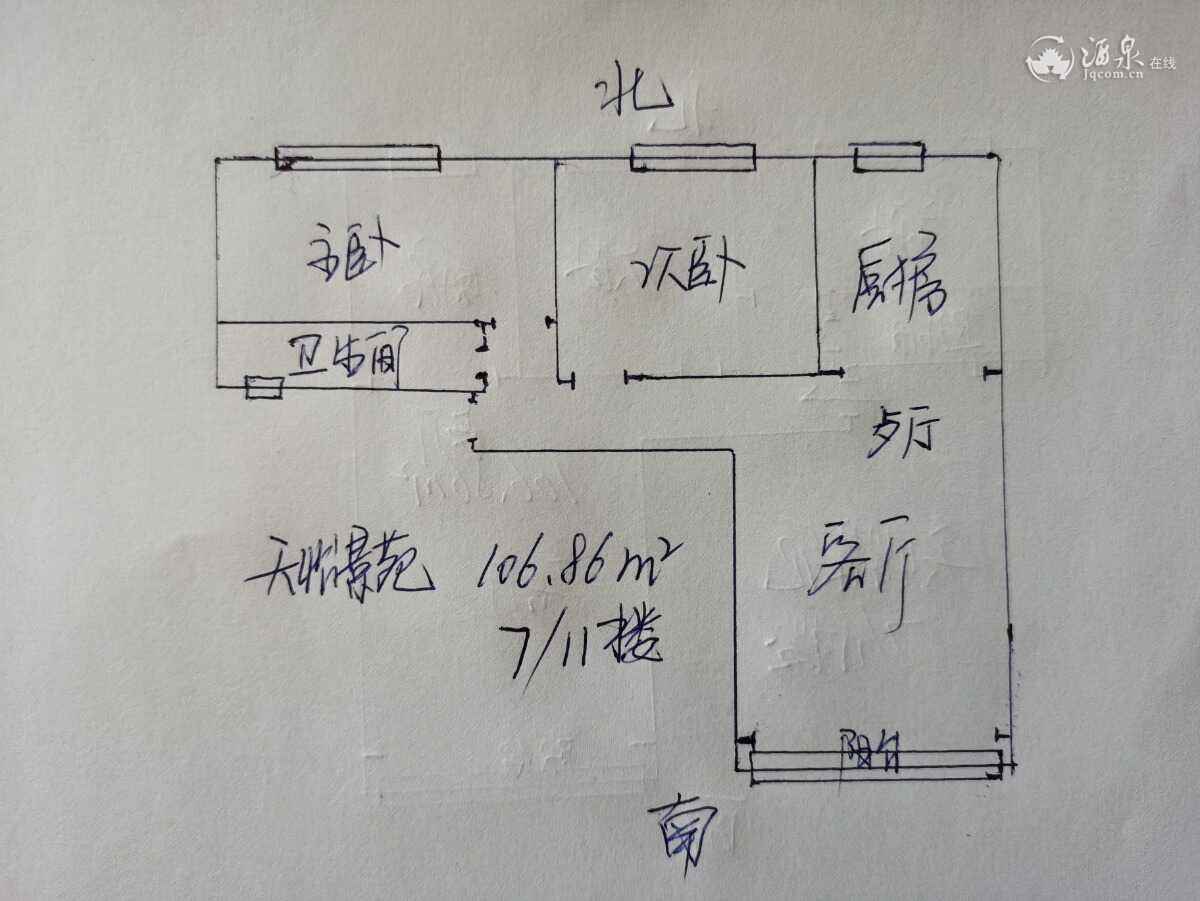 酒泉在线
Jqcom.cn
北
主卧
次卧
厨房
卫生间
歺厅
客厅
天怡景苑 106.86m²
7/11楼
阳台
南